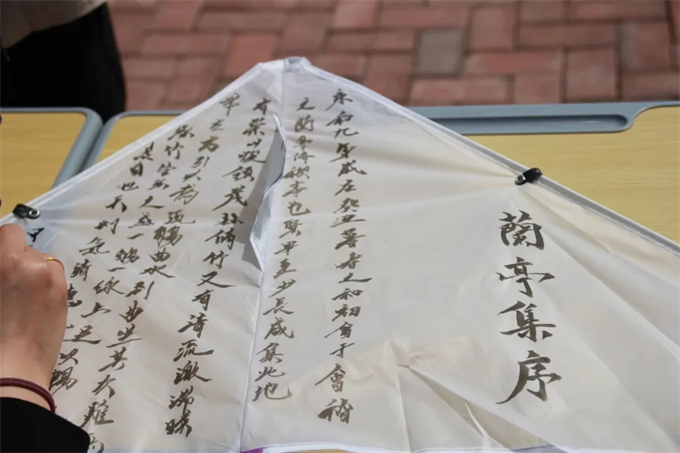 蘭亭集序
永和九年歲在癸丑暮春之初會于會稽
之蘭亭脩禊事也群賢畢至少長咸集此地
有崇山峻領茂林脩竹又有清流激湍映
帶左右引以為流觴曲水列坐其次雖無
絲竹管弦之盛一觴一詠亦足以暢
是日也天朗氣清